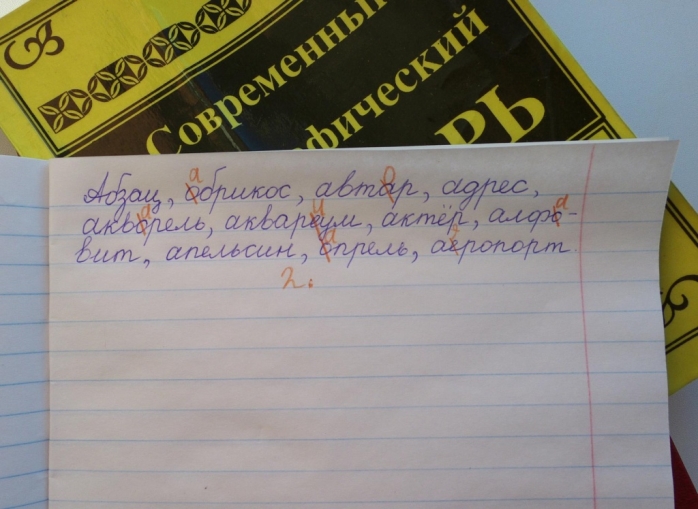 Современный
фический
РЬ
Абзац, обрикос, автар, адрес,
акворель, аквареум, актёр, алфо-
вит, апельсин, опрель, аеропорт.
2.